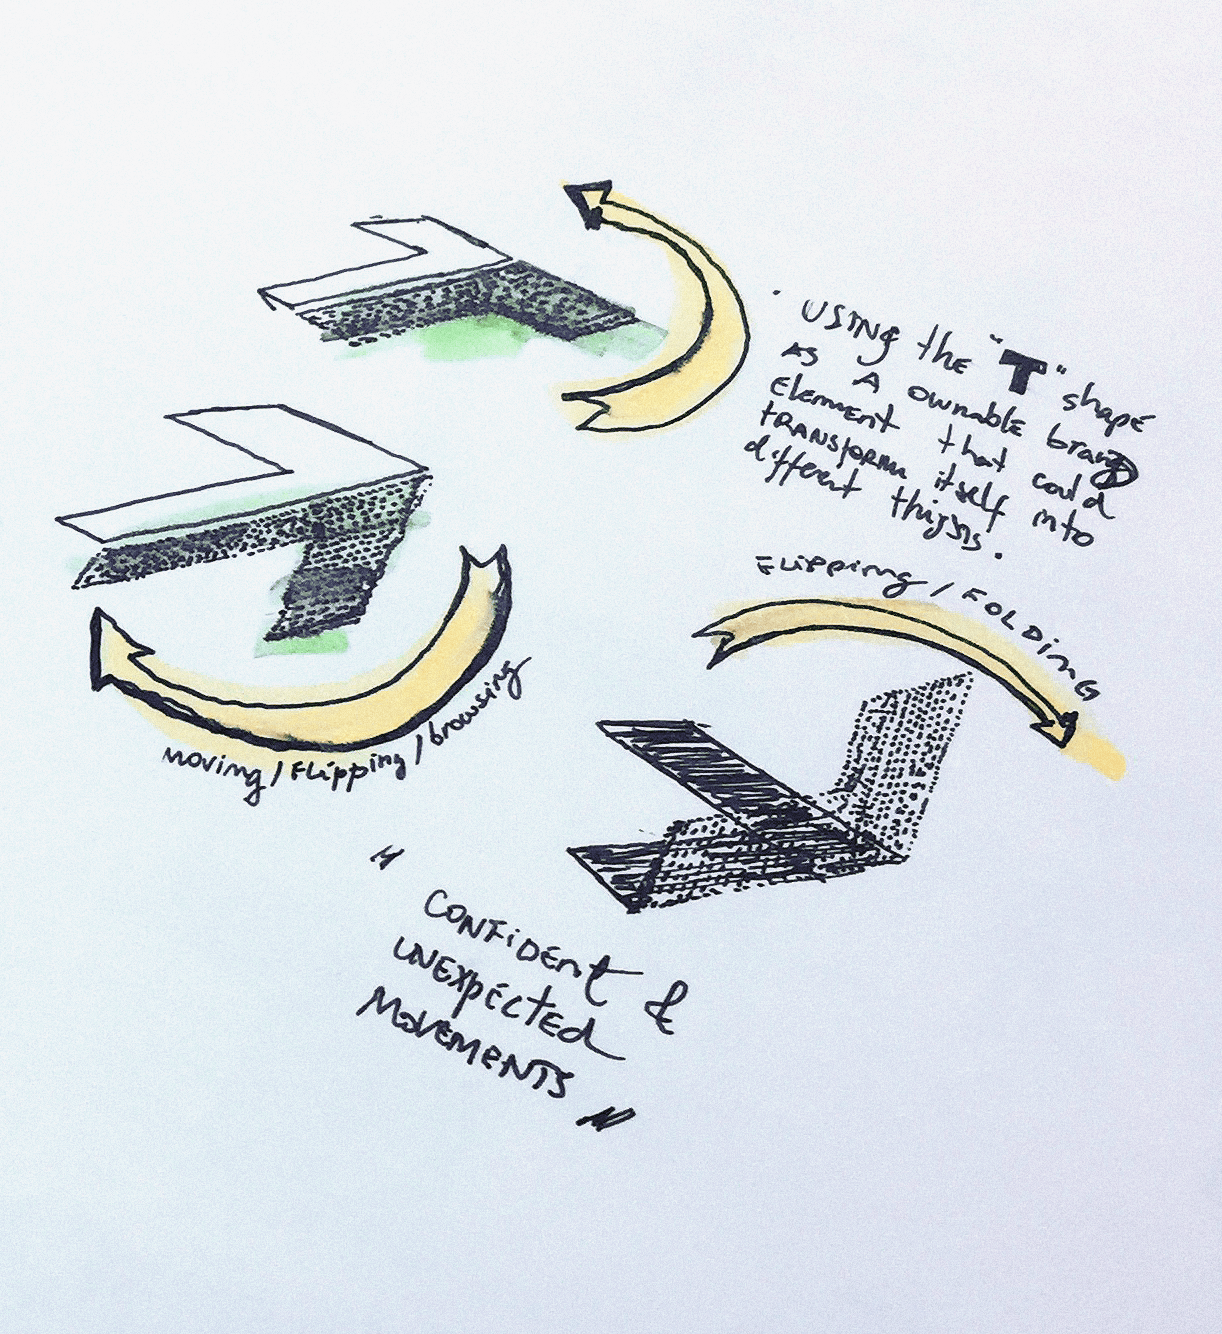 USING the "T" shape
AS A ownable brand
Element that could
TRANSform itself into
different thigsns.
FLipping / FOLDinG
moving / FLipping / browsing
"
CONFiDEnt &
UNEXpECTED
MOVEMENTS"